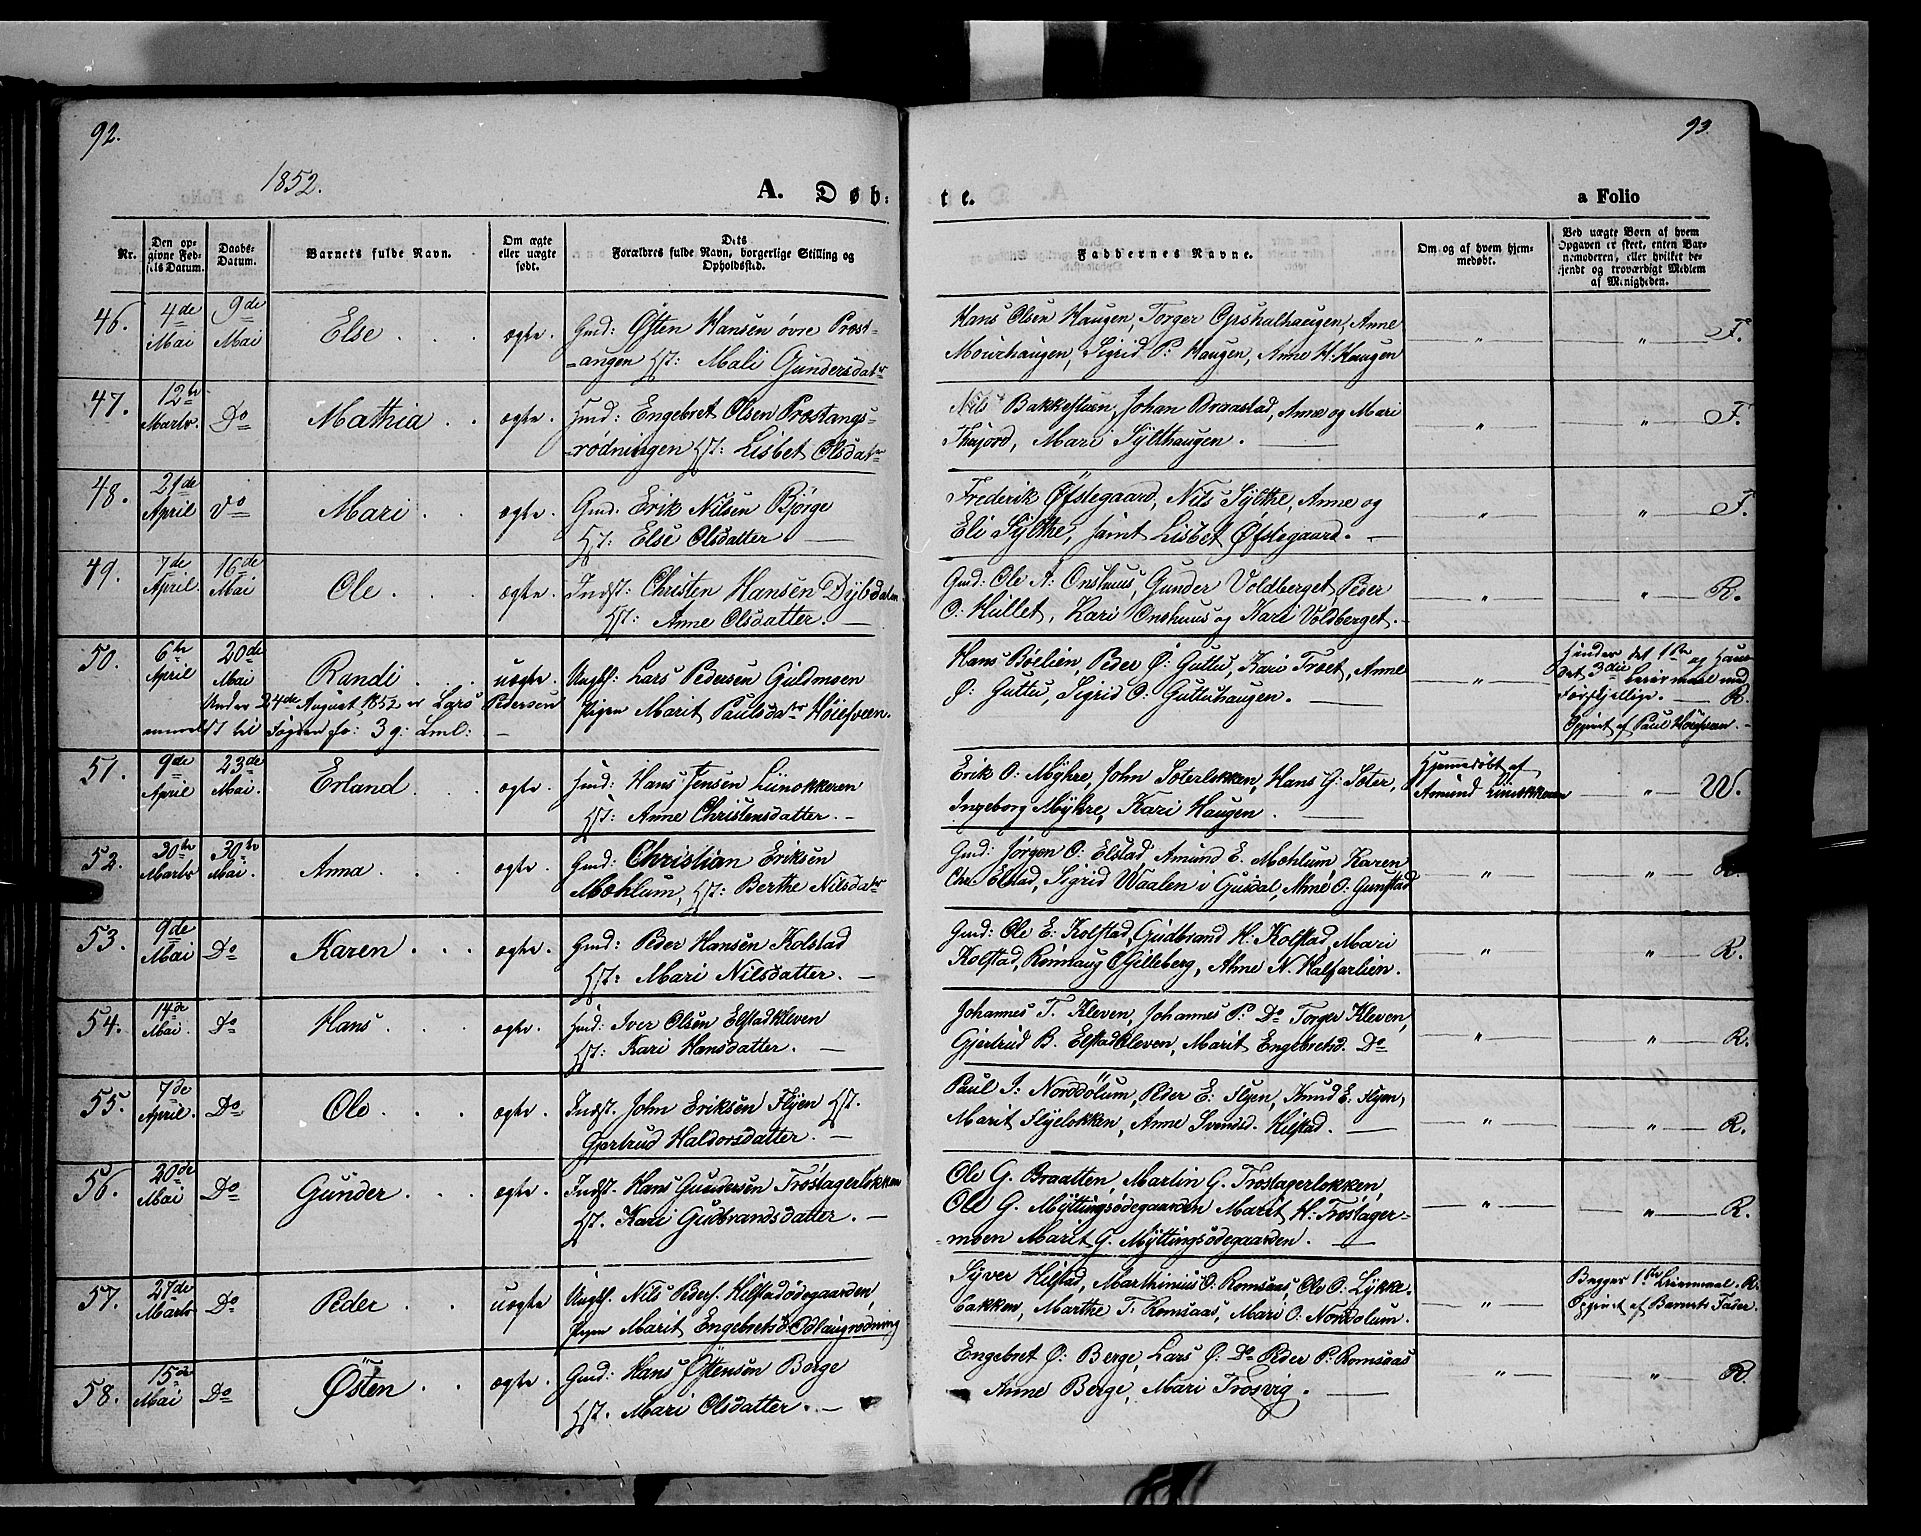 92.
93.
1852.
A. Døb:
te.
a Folio
Nr.
Den op-
givne Fød-
sels Datum.
Daabs-
Datum.
Barnets fulde Navn.
Om ægte
eller uægte
født.
Dets
Forældres fulde Navn, borgerlige Stilling og
Opholdssted.
Faddernes Navne.
Om og af hvem hjem-
medøbt.
Ved uægte Børn af hvem
Opgaven er skeet, enten Bar-
nemoderen, eller hvilket be-
kjendt og troværdigt Medlem
af Menigheden.
46. 4de Mai 9de Mai Else ægte. Gmd: Østen Hansen øvre Prøst-
=angen Hst: Mali Gundersdatr
Hans Olsen Haugen, Torger Opshalhaugen, Anne
Mourhaugen, Sigrid P: Haugen, Anne H. Haugen
" " F.
47. 12te Marts. Do Mathia ægte. Hmd: Engebret Olsen Prøstangs-
=rødningen Hst: Lisbet Olsdatr
Nils Bakkestuen, Johan Braastad, Anne og Mari
Thujord, Mari Sylthaugen.
" " F.
48. 21de April Do Mari ægte. Gmd. Erik Nilsen Bjørge
Hst: Else Olsdatter.
Frederik Øfstegaard, Nils Sylthe, Anne og
Eli Sylthe, samt Lisbet Øfstegaard.
" " F.
49. 7de April. 16de Mai Ole ægte. Indst: Christen Hansen Dybdalen
Hst: Anne Olsdatter.
Gmd: Ole A: Onshuus, Gunder Voldberget, Peder
O: Hullet, Kari Onshuus og Kari Voldberget.
" " R.
50. 6te April 20de Mai Randi uægte. Ungk: Lars Pedersen Guldmoen
Pigen Marit Paulsdatr Høiesveen.
Under 24de August 1852 er Lars Pedersen
anmeldt til Fogden for 3 g: Lml:
Hans Bøelien, Peder Ø: Guttu, Kari Troet, Anne
Ø: Guttu, Sigrid O: Guttuhaugen.
"
Hendes det 1ste og Hans
det 3die Leiermaal med
forskjellige. R.
Opgivet af Paul Høiesveen.
51. 9de April 23de Mai. Erland ægte. Hmd: Hans Jensen Liinokkeren
Hst: Anne Christensdatter.
Erik O: Myhre, John Soterløkken, Hans G: Soter,
Ingeborg Myhre, Kari Haugen.
Hjemmedøbt af
Amund Linokkeren
" W.
52. 30te Marts 30te Mai. Anna ægte. Gmd: Christian Eriksen
Mæhlum, Hst: Berthe Nilsdatr
Gmd: Jørgen O: Elstad, Amund E. Mæhlum, Karen
Chr: Elstad, Sigrid Waalen i Gusdal, Anne O: Gunstad
" " R.
53. 9de Mai Do Karen ægte. Gmd: Peder Hansen Kolstad
Hst: Mari Nilsdatter.
Gmd: Ole E: Kolstad, Gudbrand H: Kolstad, Mari
Kolstad, Rønnaug Gilleberg, Anne N. Halfarlien.
" " R.
54. 14de Mai. Do Hans ægte. Hmd: Iver Olsen Elstadkleven
Hst: Kari Hansdatter.
Johannes T. Kleven, Johannes P: Do Torger Kleven,
Gjertrud B. Elstadkleven, Marit Engebretsd. Do
" " R.
55. 7de April. Do Ole ægte. Indst. John Eriksen Flyen Hst.
Gjertrud Haldorsdatter.
Paul I: Norddølum, Peder E: Flyen, Knud E. Flyen,
Marit Flyeløkken, Anne Svendsd. Hilstad.
" " R.
56. 20de Mai Do Gunder ægte. Indst. Hans Gundersen Trøstagerløkken
Hst. Kari Gudbrandsdatter.
Ole G. Braatten, Martin G. Trøstagerløkken,
Ole G. Myttingsødegaarden Marit H: Trøstager-
=moen Marit G. Myttingsødegaarden.
" " R.
57. 27de Marts Do Peder uægte Ungk. Nils Peders. Hilstadødegaarden,
Pigen Marit Engebretsd: Odlaugrødning
Syver Hilstad, Marthinius O: Romsaas, Ole O: Lykke-
bakken, Marthe T: Romsaas, Mari O: Nordølum.
"
Begges 1ste Leiermaal. R.
Opgivet af Barnets Fader.
58. 15de Mai Do Østen ægte. Gmd: Hans Østensen Berge
Hst. Mari Olsdatter.
Engebret Ø: Berge, Lars Ø: Do Peder P: Romsaas
Anne Berge, Mari Trøsvig.
" " R.